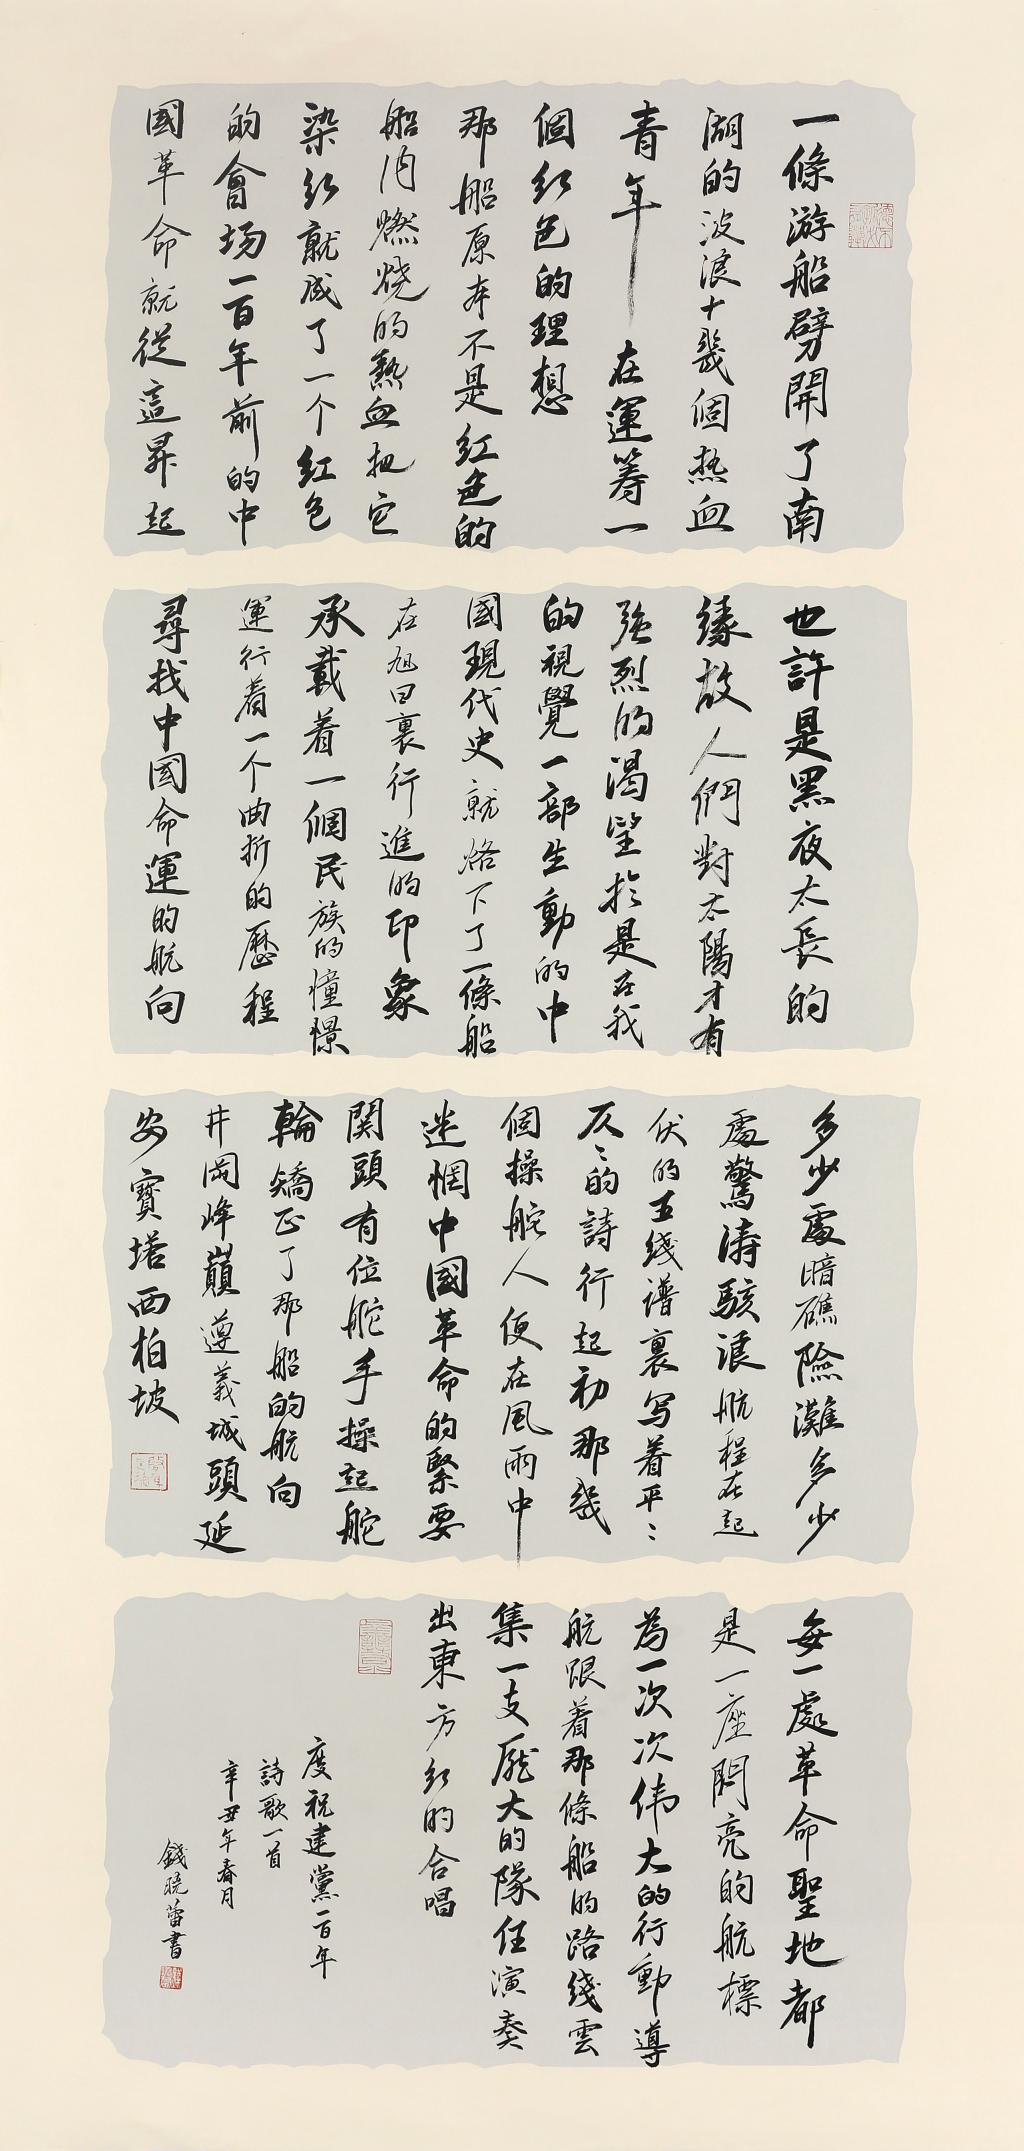 一條游船劈開了南
湖的波浪十幾個热血
青年 在運筹一
個红色的理想
那船原本不是红色的
船内燃烧的熱血把它
染红就成了一个红色
的會场一百年前的中
國革命就從這昇起
也許是黑夜太長的
缘故人們對太陽才有
强烈的渴望於是在我
的視覺一部生動的中
國現代史就烙下了一條船
在旭日裏行進的印象
承載着一個民族的憧憬
運行着一个曲折的歷程
尋找中國命運的航向
多少處暗礁險灘多少
處驚涛駭浪航程在起
伏的五线谱裏写着平〻
仄〻的詩行起初那幾
個操舵人便在風雨中
迷惘中國革命的緊要
関頭有位舵手操起舵
輪矯正了那船的航向
井岡峰巔遵義城頭延
安寶塔西柏坡
每一處革命聖地都
是一座閃亮的航標
為一次次伟大的行動導
航跟着那條船的路线雲
集一支龐大的隊伍演奏
出東方红的合唱
度祝建黨一百年
詩歌一首
辛丑年春月
錢晓蕾書